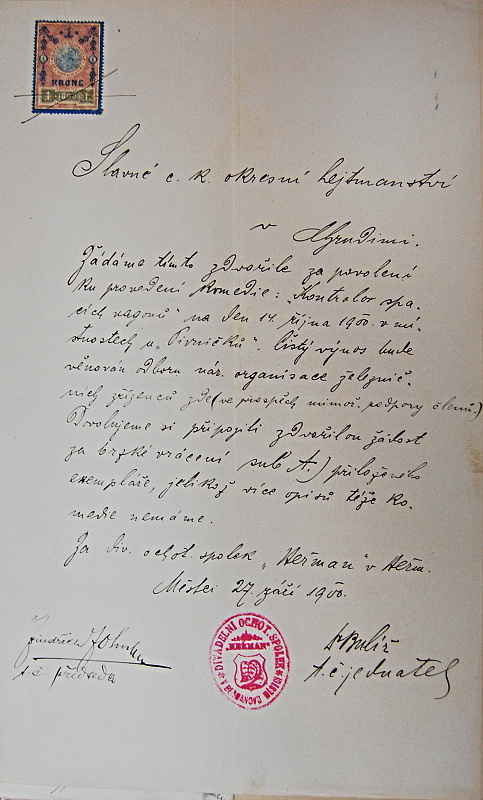 KRONE
Slavné c. k. okresní hejtmanství
v Chrudimi.
Žádáme tímto zdvořile za povolení
ku provedení komedie: „Kontrolor spa-
cích vagonů" na den 14. října 1900 v mí-
stnostech u „Pivničků". Čistý výnos bude
věnován odboru nár. organisace železnič-
ních zřízenců zde (ve prospěch mimoř. podpory členů.)
Dovolujeme si připojiti zdvořilou žádost
za brzké vrácení sub A.) přiloženého
exempláře, jelikož více opisů téže ko-
medie nemáme.
Za div. ochot. spolek „Heřman" v Heřm.
Městci 27. září 1900.
Jindřich
t. č. předseda
DIVADELNÍ OCHOT. SPOLEK
"HEŘMAN"
V HEŘMANOVĚ MĚSTCI
t. č. jednatel